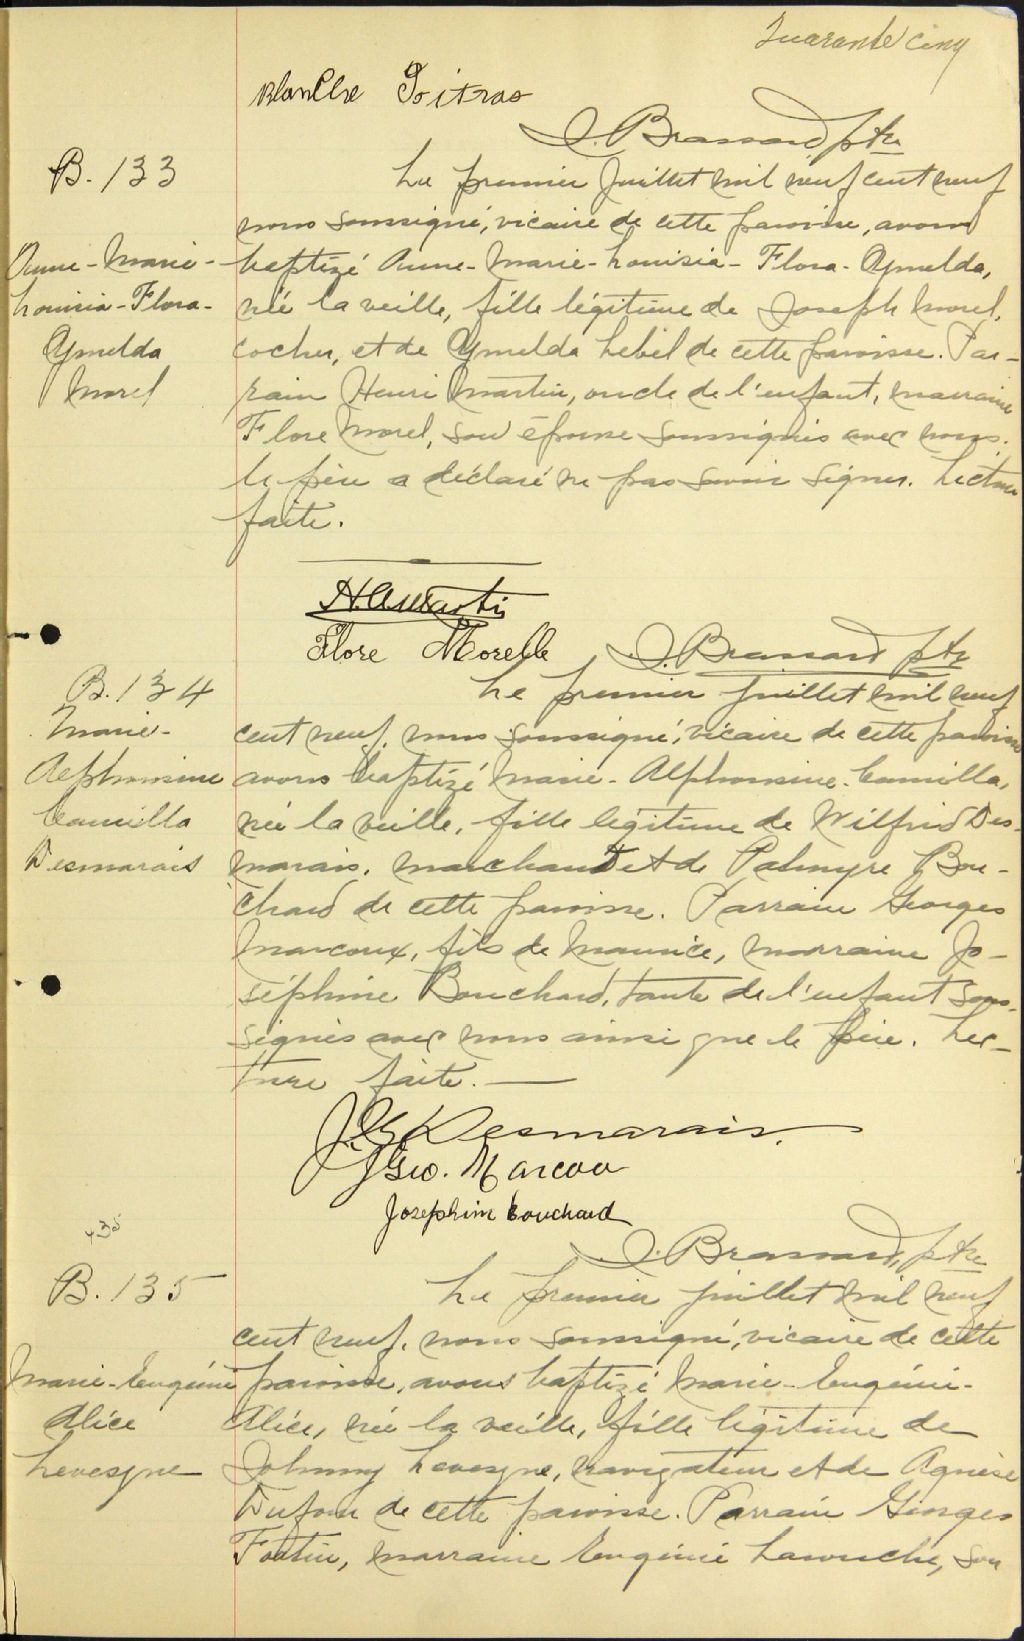 Quarante cinq
Blanche Poitras
J. Brassard, ptre
B. 133
Le premier Juillet mil neuf cent neuf
nous soussigné, vicaire de cette paroisse, avons
Anne-Marie-
baptizé Anne-Marie-Louisia-Flora-Ymelda,
Louisia-Flora-
née la veille, fille légitime de Joseph Morel,
Ymelda
cocher, et de Ymelda Lebel de cette paroisse. Par-
Morel
rain Henri Martin, oncle de l'enfant, marraine
Flore Morel, son épouse soussignés avec nous.
le père a déclaré ne pas savoir signer. Lecture
faite.
Flore Morelle
J. Brassard ptre
B. 134
Le premier juillet mil neuf
Marie-
cent neuf, nous soussigné, vicaire de cette paroisse
Alphonsine
avons baptizé Marie-Alphonsine-Camilla,
Camilla
née la veille, fille légitime de Wilfrid Des-
Desmarais
marais, marchand et de Palmyre Bou-
chard de cette paroisse. Parrain Georges
Marcoux, fils de Maurice, marraine Jo-
séphine Bouchard, tante de l'enfant sous-
signés avec nous ainsi que le père. Lec-
ture faite.
J. G. Desmarais.
Geo. Marcou
Josephine Bouchard
J. Brassard, ptre
135
B. 135
Le premier juillet mil neuf
cent neuf, nous soussigné, vicaire de cette
Marie-Eugénie
paroisse, avons baptizé Marie-Eugénie-
Alice
Alice, née la veille, fille légitime de
Levesque
Johnny Levesque, navigateur et de Agnèse
Dufour de cette paroisse. Parrain Georges
Fortin, marraine Eugénie Larouche, son